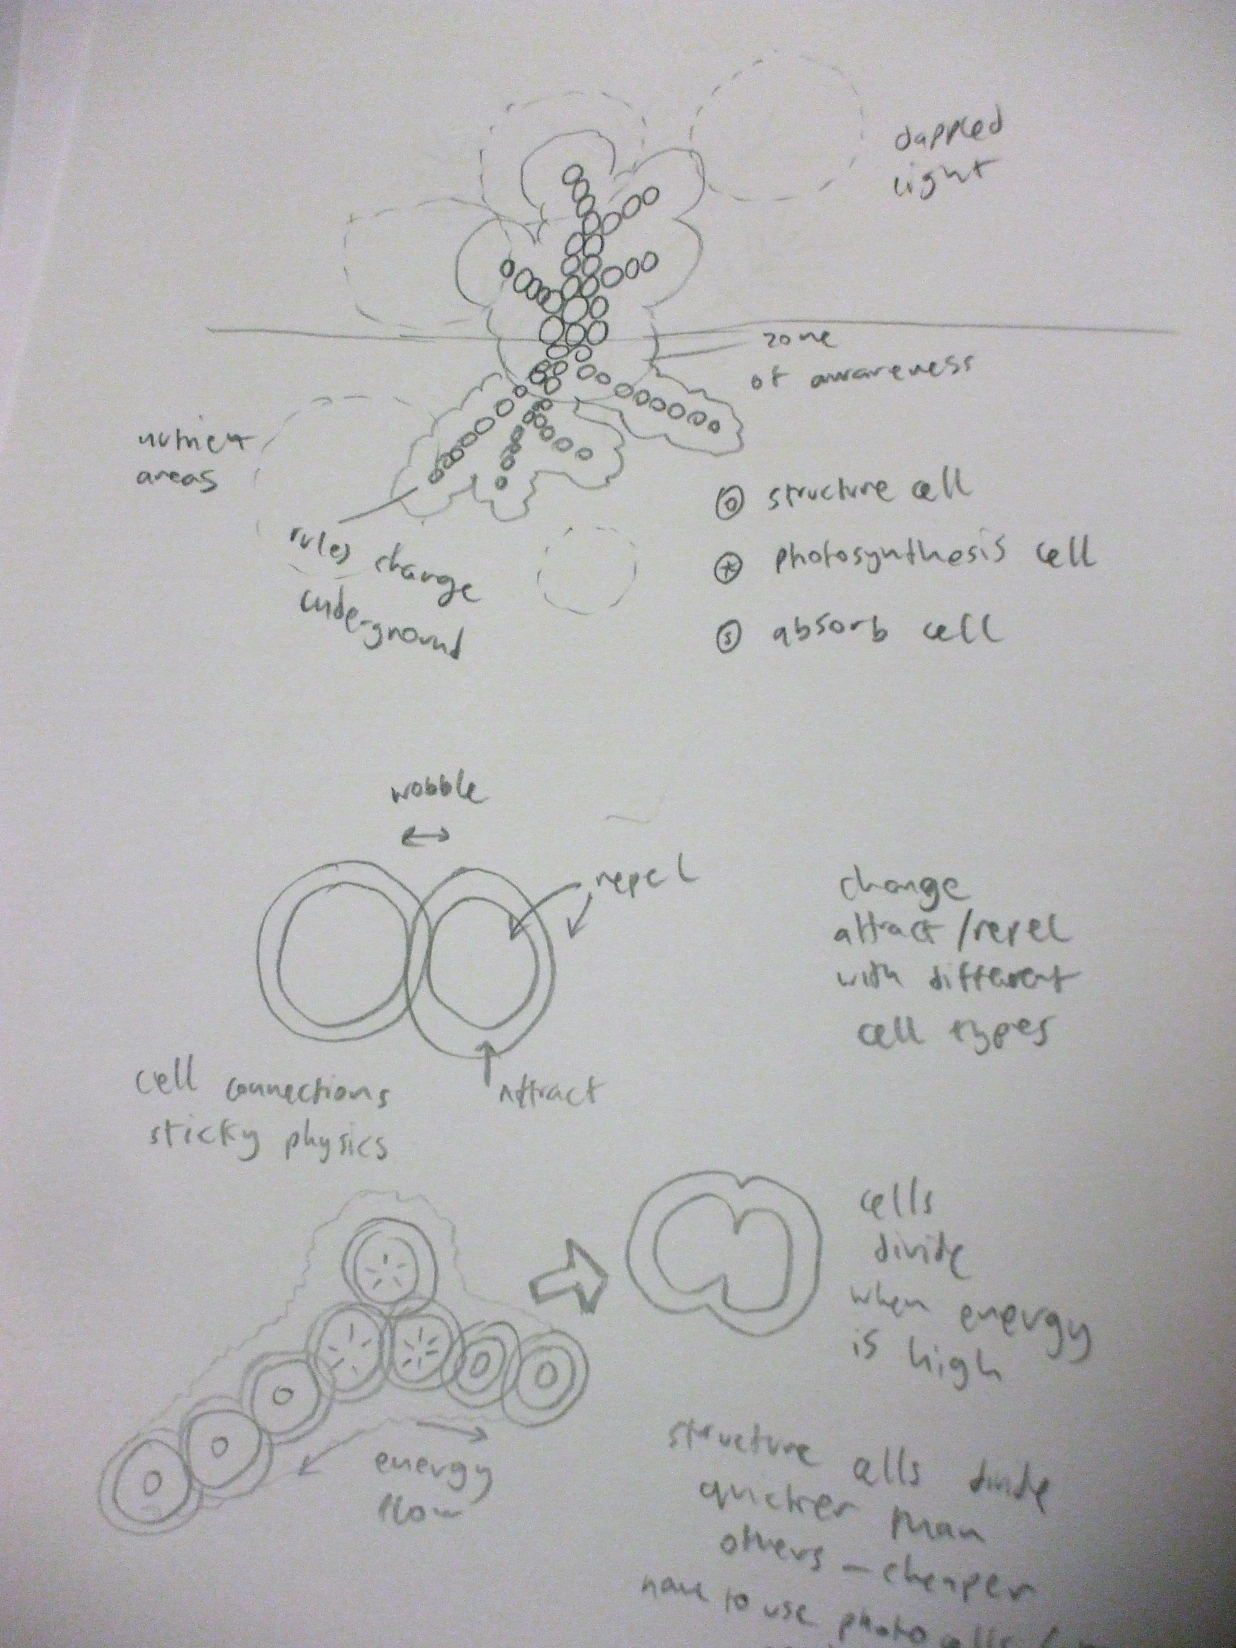 dappled
light
zone
of awareness
nutrient
areas
structure cell
rules change
underground
photosynthesis cell
s absorb cell
wobble
repel
change
attract/repel
with different
cell types
cell connections
sticky physics
Attract
cells
divide
when energy
is high
energy
flow
structure cells divide
quicker than
others – cheaper
have to use photo cells /